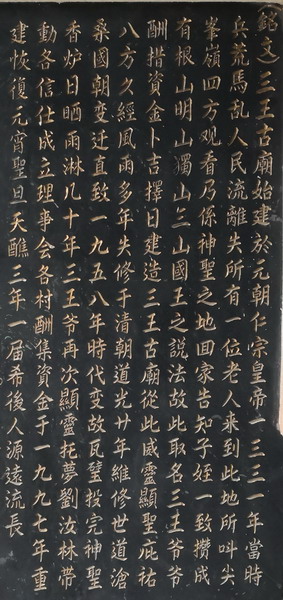 (銘文)三王古廟始建於元朝仁宗皇帝一三三一年當時
兵荒馬乱人民流離失所有一位老人来到此地所叫尖
峯嶺四方观看乃係神聖之地回家告知子姪一致攒成
有根山明山獨山三山國王之說法故此取名三王爷爷
酬措資金卜吉擇日建造三王古廟從此威靈顯聖庇祐
八方久經風雨多年失修于清朝道光廿年維修世道滄
桑國朝变迁直致一九五八年時代变故瓦璧投完神聖
香炉日晒雨淋几十年三王爷再次顯靈托夢劉汝林带
動各信仕成立理事会各村酬集資金于一九九七年重
建恢復元宵聖旦天醮三年一屆希後人源遠流長